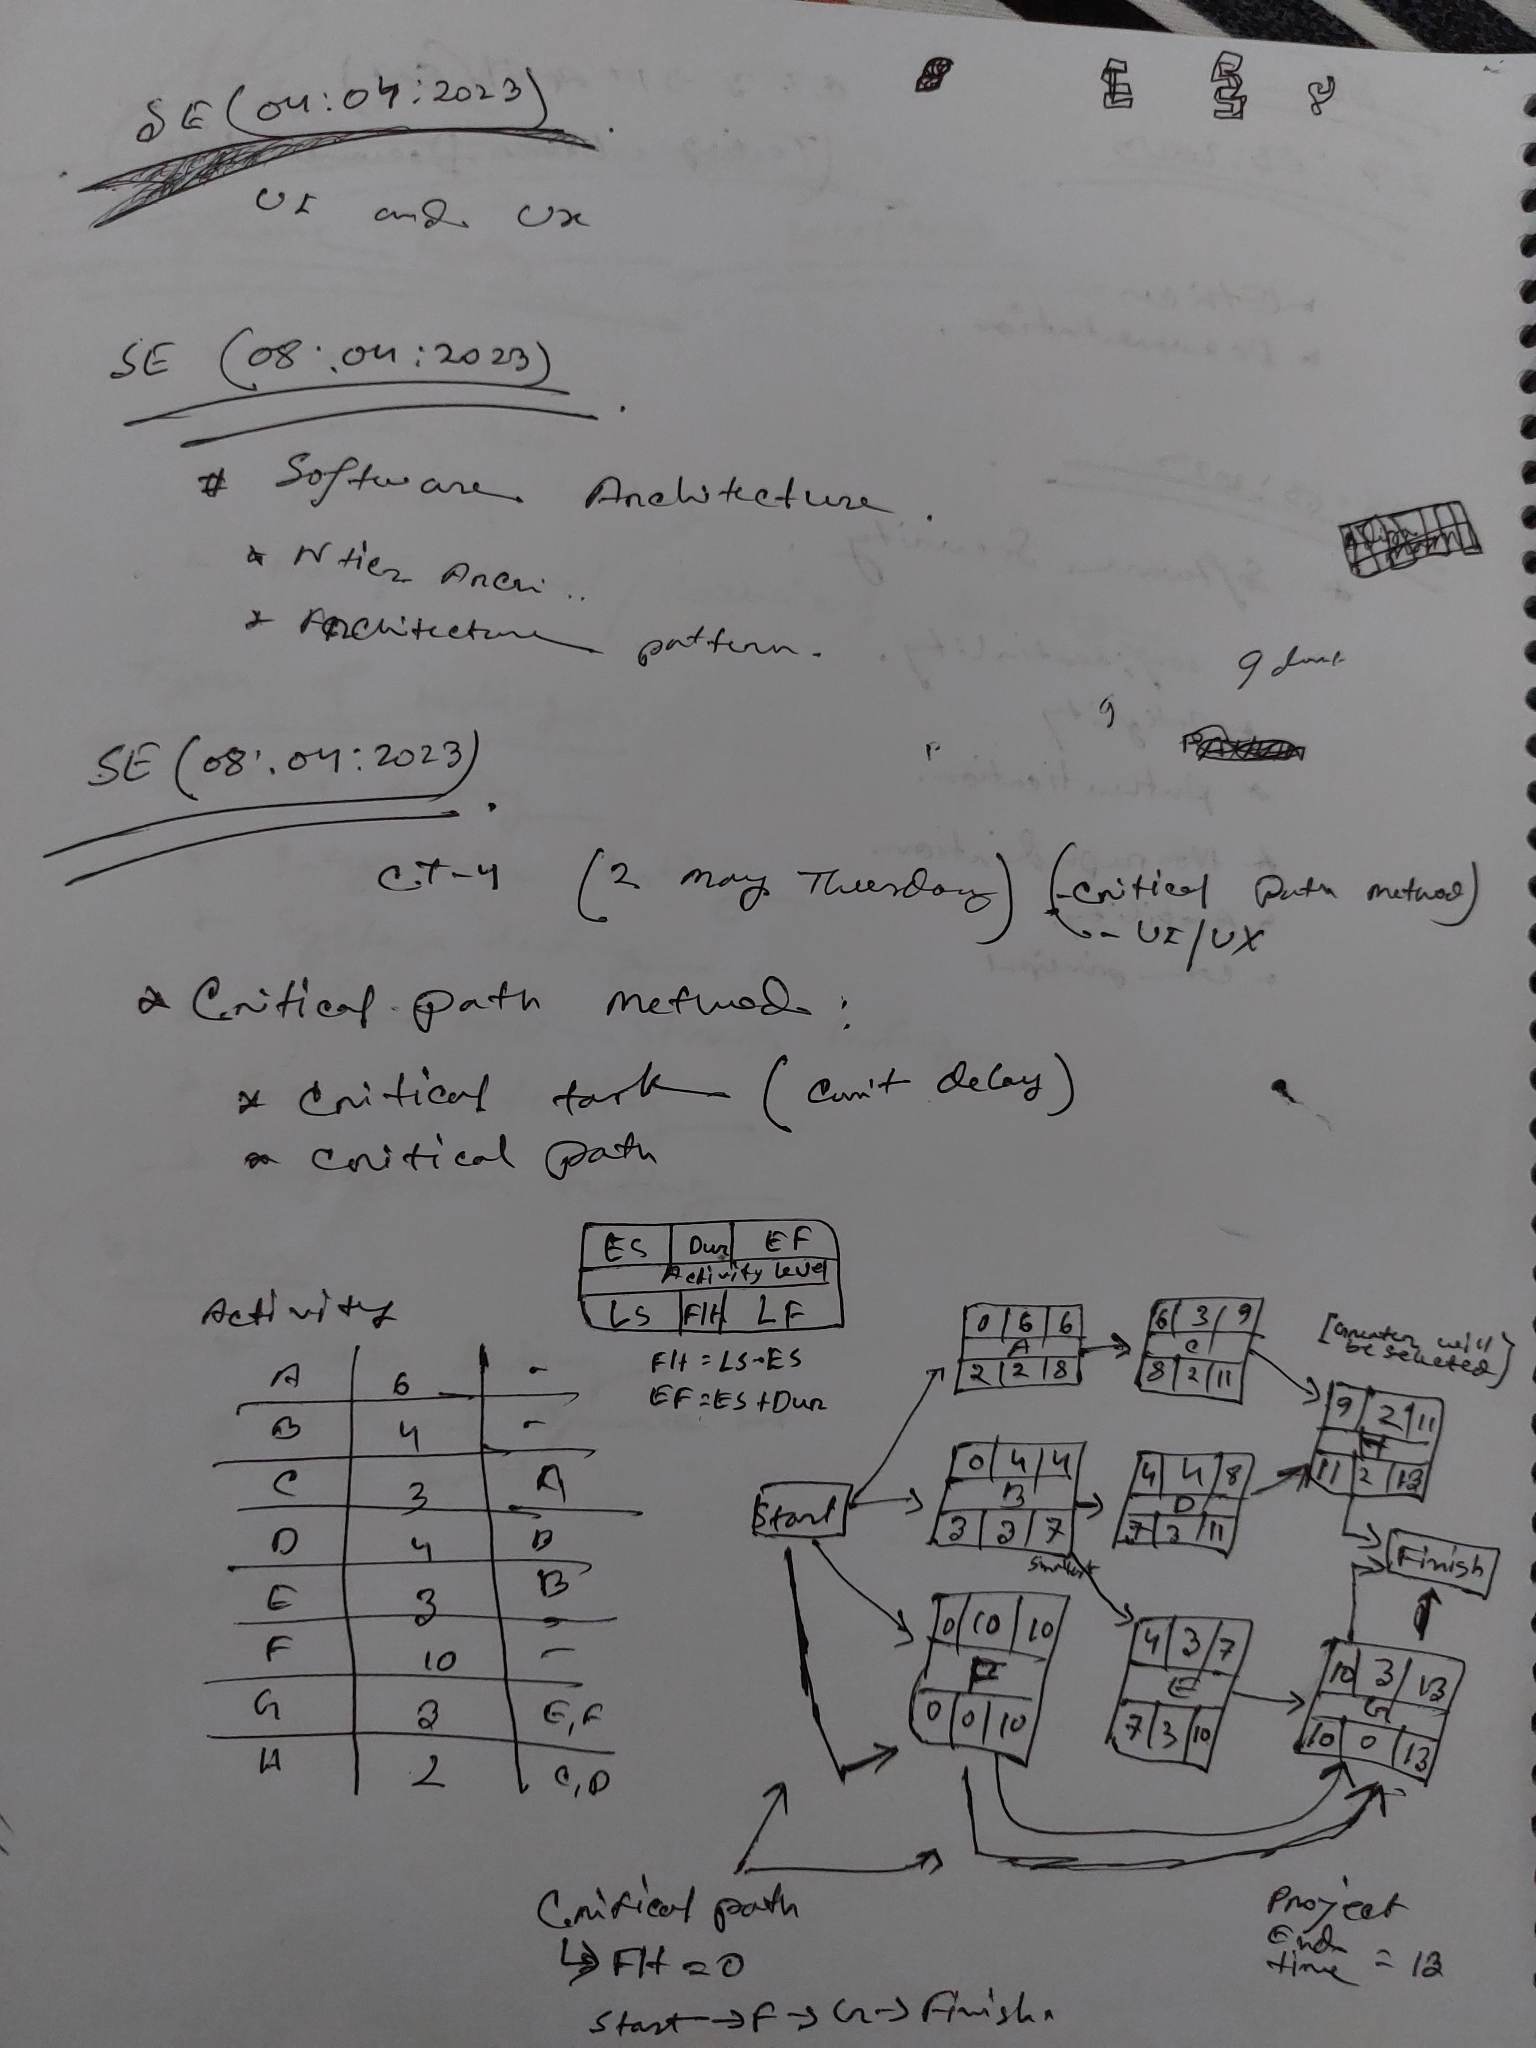 SE (04:04:2023)
UI and Ux
SE (08:04:2023)
# Software Architecture.
* N tier Archi..
* Architecture pattern.
SE (08:04:2023)
CT-4 (2 may Thuesday) (-Critical path method)
- UI/UX
* Critical path method:
* Critical task (can't delay)
* critical path
ES | Dur | EF
Activity level
LS | Flt | LF
Flt = LS-ES
EF = ES + Dur
Activity
A | 6 | -
B | 4 | -
C | 3 | A
D | 4 | B
E | 3 | B
F | 10 | -
G | 3 | E,F
H | 2 | C,D
0 | 6 | 6
A
2 | 2 | 8
6 | 3 | 9
C
8 | 2 | 11
[Greater will be selected]
9 | 2 | 11
H
11 | 2 | 13
Start
0 | 4 | 4
B
3 | 3 | 7
smallest
4 | 4 | 8
D
7 | 3 | 11
Finish
0 | 10 | 10
F
0 | 0 | 10
4 | 3 | 7
E
7 | 3 | 10
10 | 3 | 13
G
10 | 0 | 13
Critical path
↳ Flt = 0
Start → F → G → Finish.
Project
End
time = 13